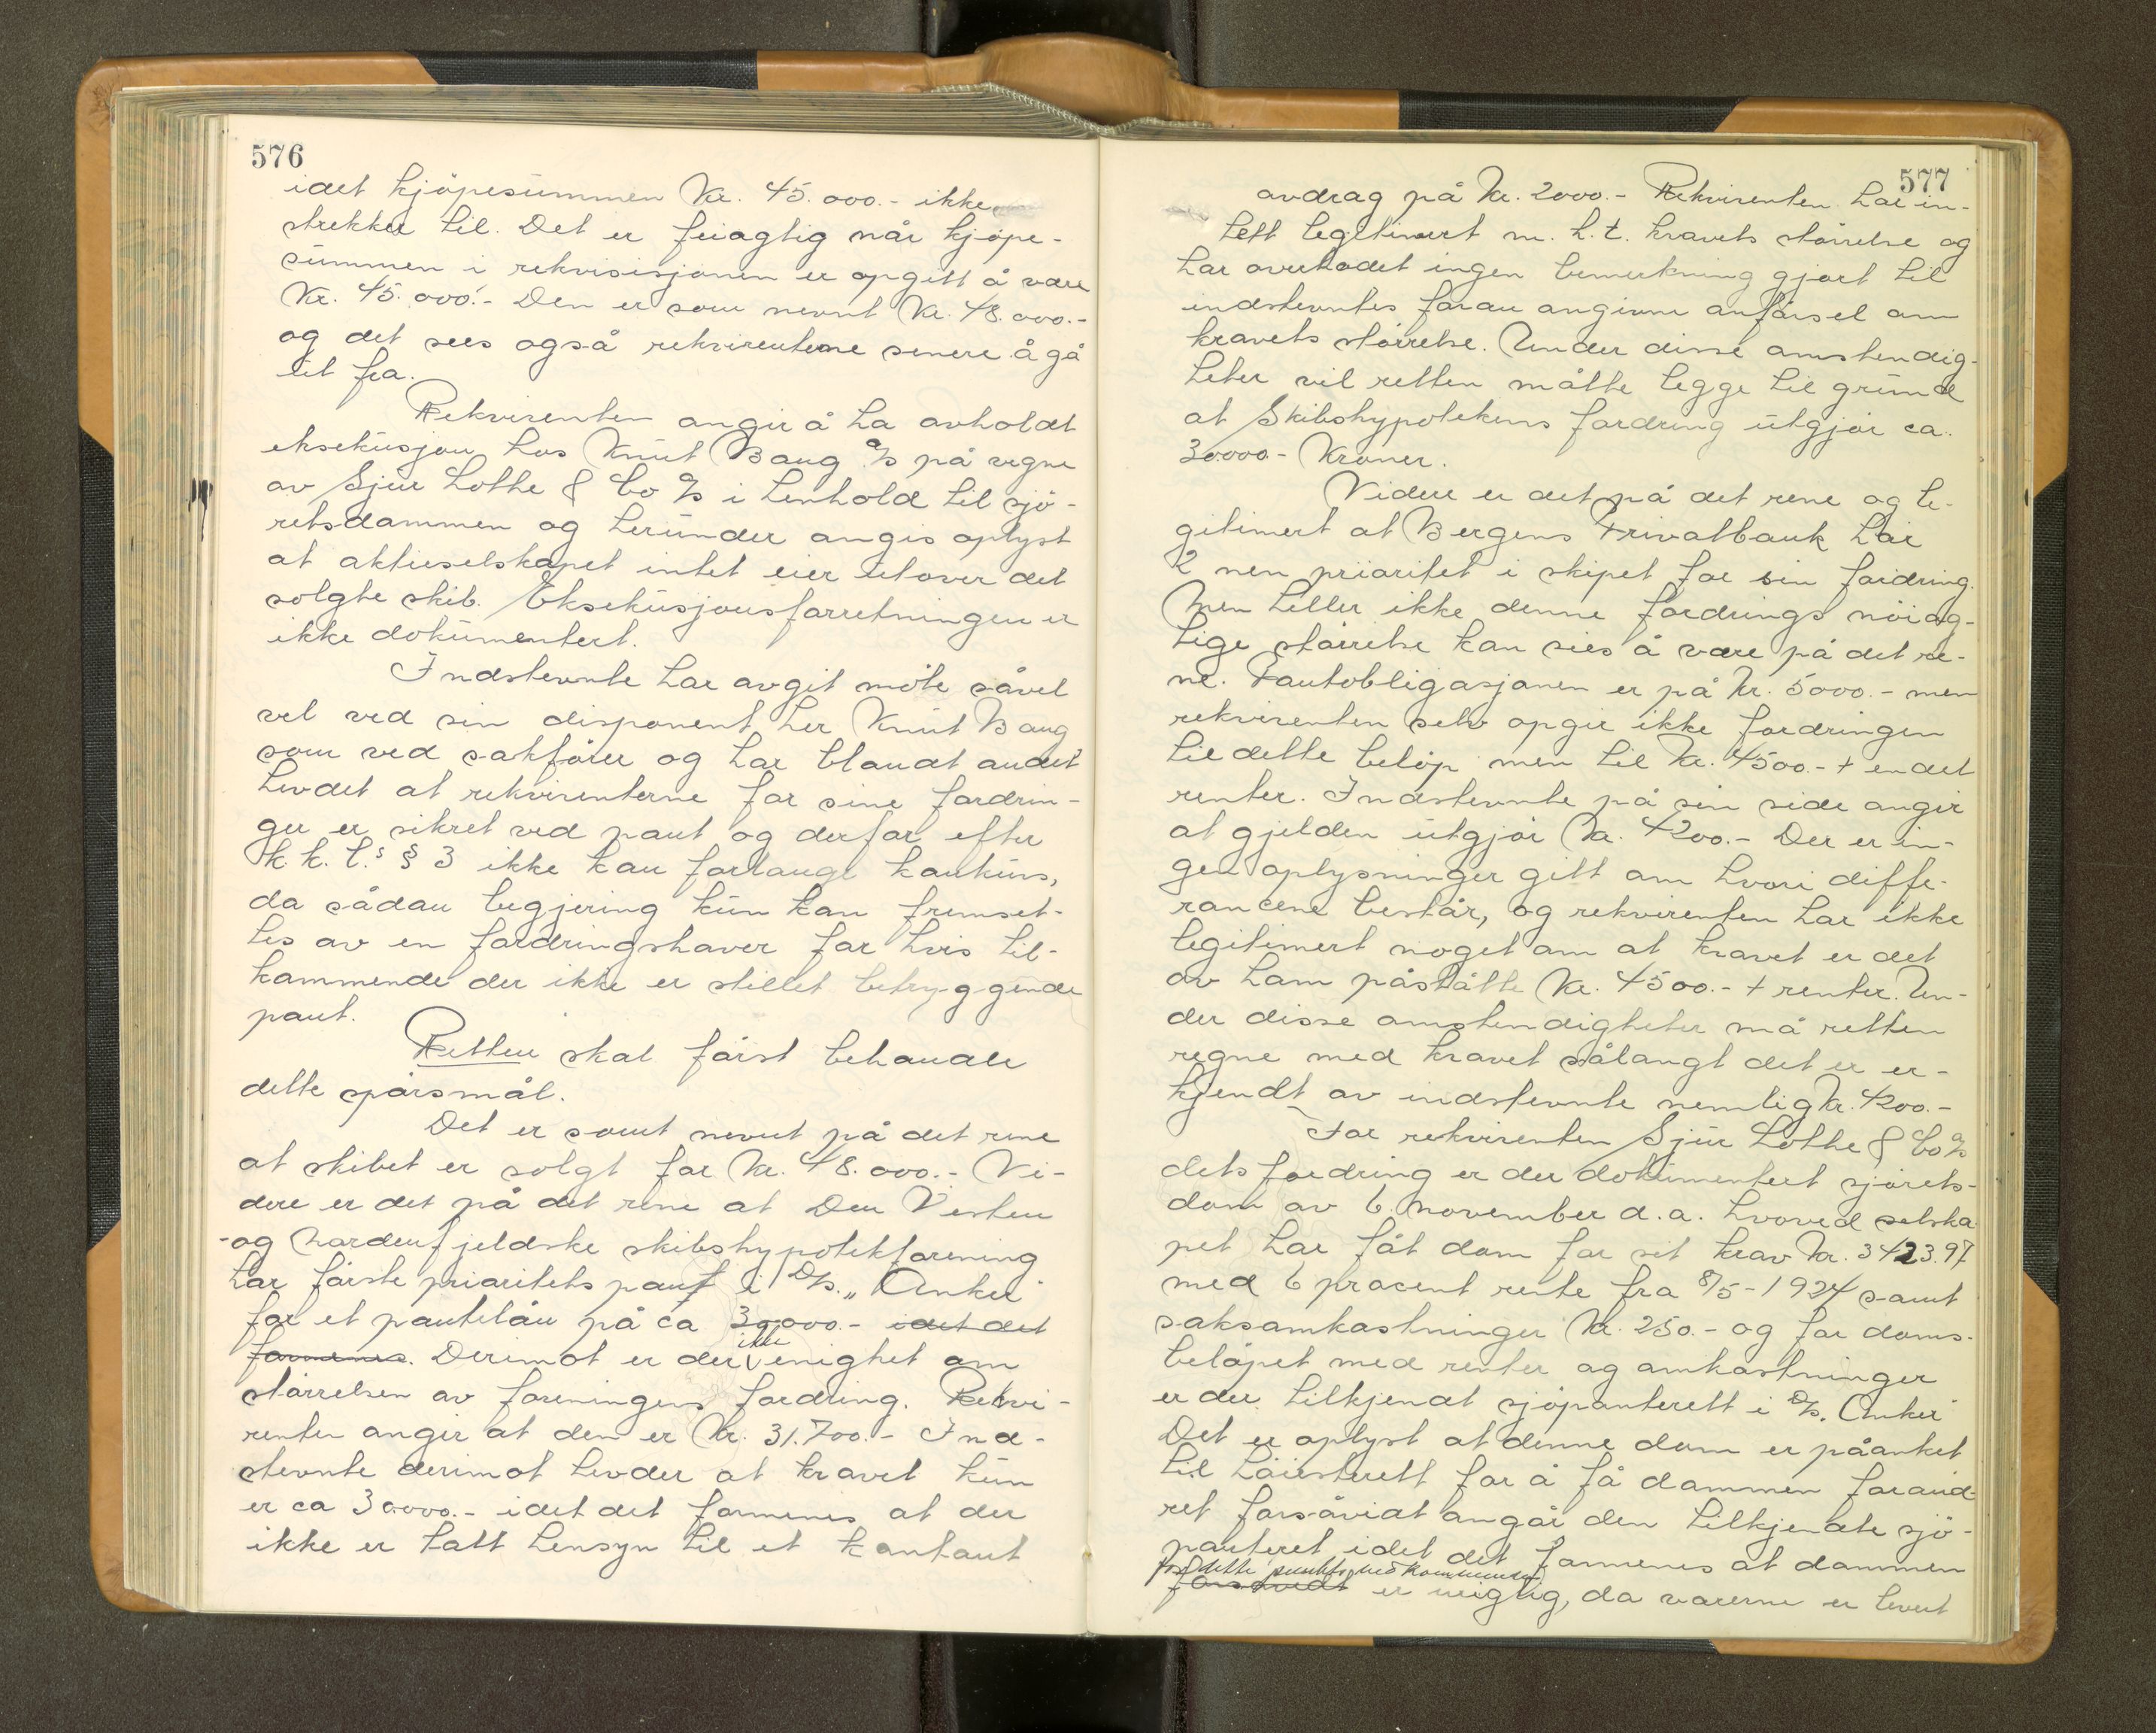 576
idet kjöpesummen Kr. 45.000.- ikke
strekker til. Det er feiagtig når kjöpe-
summen i rekvisisjonen er opgitt å være
Kr. 45.000.- Den er som nevnt Kr. 48.000.-
og det sees også rekvirenterne senere å gå
ut fra.
Rekvirenten angir å ha avholdt
eksekusjon hos Knut Baug a/s på vegne
av Sjur Lothe & Co a/s i henhold til sjö-
retsdommen og herunder angis oplyst
at aktieselskapet intet eier utover det
solgte skib. Eksekusjonsforretningen er
ikke dokumentert.
Indstevnte har avgit möte såvel
vel ved sin disponent her Knut Baug
som ved sakförer og har blandt andet
hevdet at rekvirenterne for sine fordrin-
ger er sikret ved pant og derfor efter
k k. l.s § 3 ikke kan forlange konkurs,
da sådan begjering kun kan fremset-
tes av en fordringshaver for hvis til-
kommende der ikke er stillet betryggende
pant.
Retten skal först behandle
dette spörsmål.
Det er somt nevnt på det rene
at skibet er solgt for Kr. 48.000.- Vi-
dere er det på det rene at Den Vesten
-og Nordenfjeldske skibshypotekforening
har förste prioritets pant i D/s. „Anker"
for et pantelån på ca 30000.- idet det
formenes. Derimot er der ikke enighet om
störrelsen av foreningens fordring. Rekvi-
renten angir at den er Kr. 31.700.- Ind-
stevnte derimot hevder at kravet kun
er ca 30000.- idet det formenes at der
ikke er tatt hensyn til et kontant
577
avdrag på Kr. 2000.- Rekvirenten har in-
tett legitimert m. h. t. kravets störrelse og
har overhodet ingen bemerkning gjort til
indstevntes foran angivne anförsel om
kravets störrelse. Under disse omstendig-
heter vil retten måtte legge til grund
at Skibshypotekens fordring utgjör ca.
30000.- Kroner.
Videre er det på det rene og le-
gitimert at Bergens Privatbank har
2 nen prioritet i skipet for sin fordring.
Men heller ikke denne fordrings nöiag-
tige störrelse kan sies å være på det re-
ne. Pantobligasjonen er på Kr. 5000.- men
rekvirenten selv opgir ikke fordringen
til dette belöp men til Kr. 4500.- + endel
renter. Indstevnte på sin side angir
at gjelden utgjör Kr. 4200.- Der er in-
gen oplysninger gitt om hvori diffe-
rancene består, og rekvirenten har ikke
legitimert noget om at kravet er det
av ham påståtte Kr. 4500.- + renter. Un-
der disse omstendigheter må retten
regne med kravet sålangt det er er-
kjendt av indstevnte nemlig Kr. 4200.-
For rekvirenten Sjur Lothe & Co a/s
dets fordring er der dokumentert sjörets-
dom av 6. november d.a. hvorved selska-
pet har fåt dom for sit krav Kr. 3423.97
med 6 procent rente fra 8/5-1924 samt
saksomkostninger Kr. 250.- og for doms-
belöpet med renter og omkostninger
er der tilkjendt sjöpanterett i D/s. Anker"
Det er oplyst at denne dom er påanket
til Höiesterett for å få dommen forand-
ret forsåvidt angår den tilkjendte sjö-
panteret idet det formenes at dommen
for dette punkts vedkommende
forsåvidt er uriglig, da varerne er levert